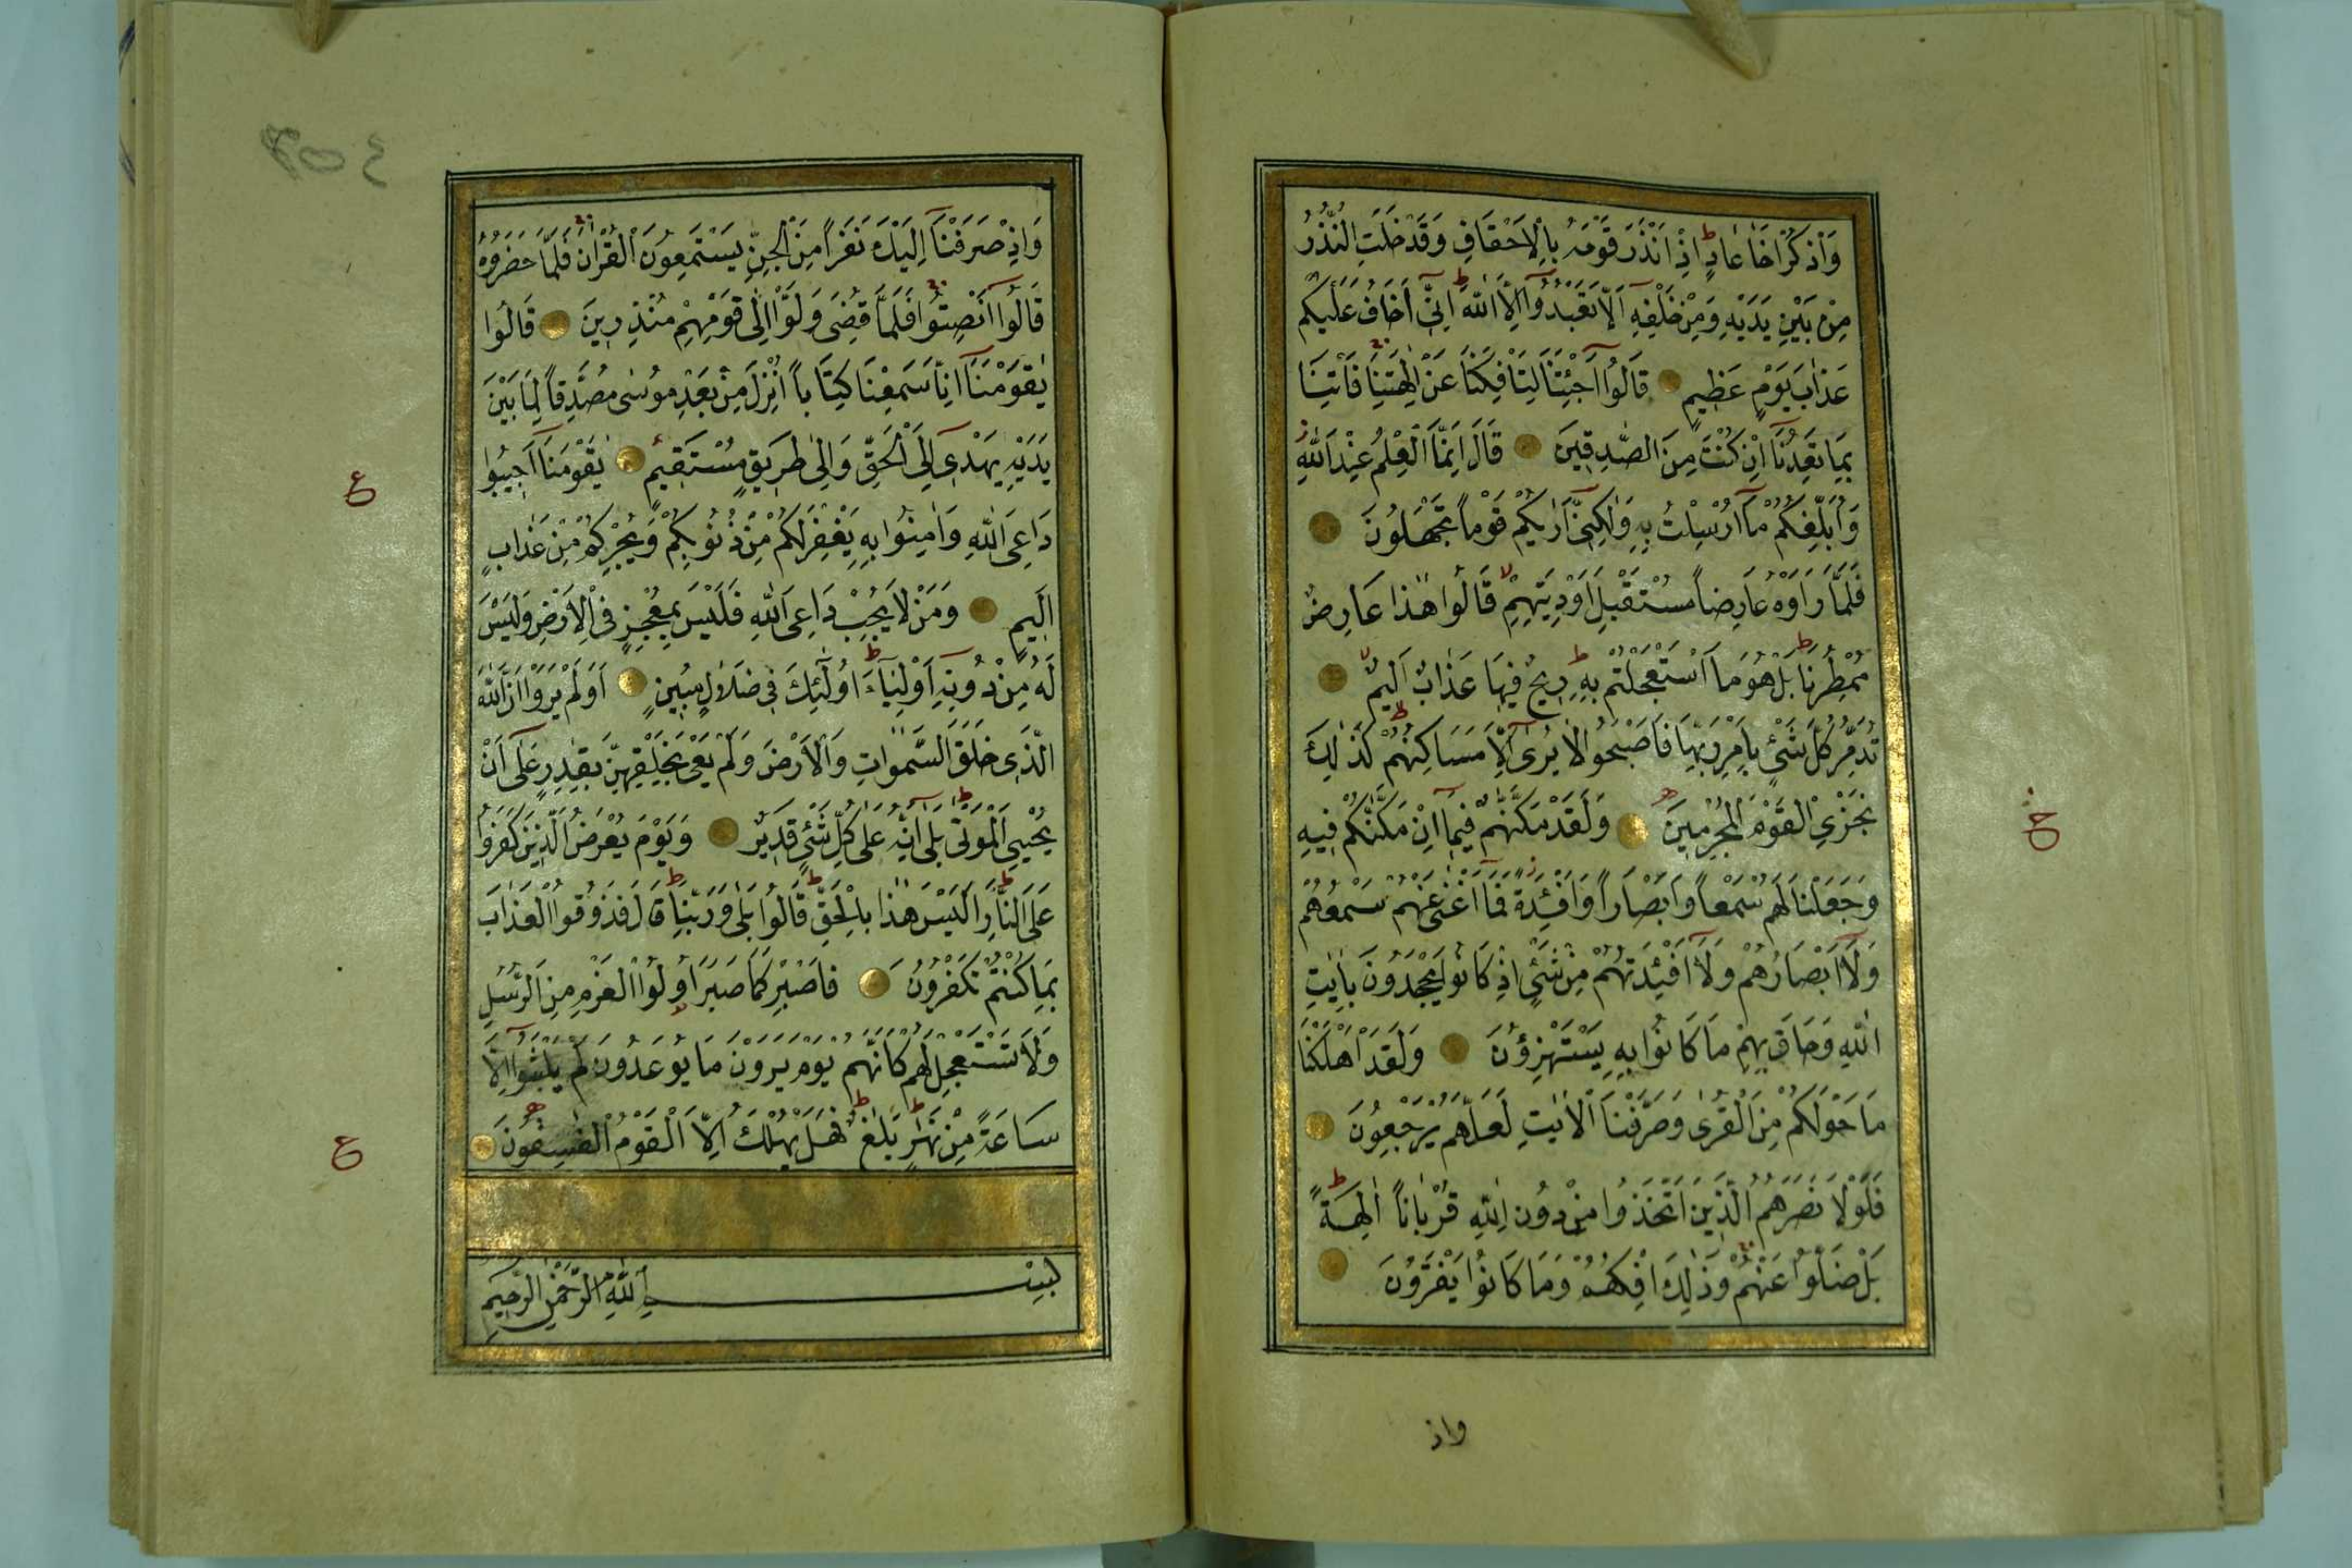 وَاذْكُرْ اَخَا عَادٍ اِذْ اَنْذَرَ قَوْمَهُ بِالْاَحْقَافِ وَقَدْ خَلَتِ النُّذُرُ
مِنْ بَيْنِ يَدَيْهِ وَمِنْ خَلْفِهٖ اَلَّا تَعْبُدُوا اِلَّا اللّٰهَ اِنّٖى اَخَافُ عَلَيْكُمْ
عَذَابَ يَوْمٍ عَظِيمٍ قَالُوا اَجِئْتَنَا لِتَاْفِكَنَا عَنْ اٰلِهَتِنَا فَاْتِنَا
بِمَا تَعِدُنَا اِنْ كُنْتَ مِنَ الصّٰدِقِينَ قَالَ اِنَّمَا الْعِلْمُ عِنْدَ اللّٰهِ
وَاُبَلِّغُكُمْ مَا اُرْسِلْتُ بِهٖ وَلٰكِنّٖى اَرٰيكُمْ قَوْماً تَجْهَلُونَ
فَلَمَّا رَاَوْهُ عَارِضاً مُسْتَقْبِلَ اَوْدِيَتِهِمْ قَالُوا هٰذَا عَارِضٌ
مُمْطِرُنَا بَلْ هُوَ مَا اسْتَعْجَلْتُمْ بِهٖ رِيحٌ فِيهَا عَذَابٌ اَلِيمٌ
تُدَمِّرُ كُلَّ شَىْءٍ بِاَمْرِ رَبِّهَا فَاَصْبَحُوا لَا يُرٰى اِلَّا مَسَاكِنُهُمْ كَذٰلِكَ
نَجْزِى الْقَوْمَ الْمُجْرِمِينَ وَلَقَدْ مَكَّنّٰهُمْ فِيمَا اِنْ مَكَّنّٰكُمْ فِيهِ
وَجَعَلْنَا لَهُمْ سَمْعاً وَاَبْصَاراً وَاَفْئِدَةً فَمَا اَغْنٰى عَنْهُمْ سَمْعُهُمْ
وَلَا اَبْصَارُهُمْ وَلَا اَفْئِدَتُهُمْ مِنْ شَىْءٍ اِذْ كَانُوا يَجْحَدُونَ بِاٰيٰتِ
اللّٰهِ وَحَاقَ بِهِمْ مَا كَانُوا بِهٖ يَسْتَهْزِؤُنَ وَلَقَدْ اَهْلَكْنَا
مَا حَوْلَكُمْ مِنَ الْقُرٰى وَصَرَّفْنَا الْاٰيٰتِ لَعَلَّهُمْ يَرْجِعُونَ
فَلَوْلَا نَصَرَهُمُ الَّذِينَ اتَّخَذُوا مِنْ دُونِ اللّٰهِ قُرْبَاناً اٰلِهَةً
بَلْ ضَلُّوا عَنْهُمْ وَذٰلِكَ اِفْكُهُمْ وَمَا كَانُوا يَفْتَرُونَ
واذ
وَاِذْ صَرَفْنَا اِلَيْكَ نَفَراً مِنَ الْجِنِّ يَسْتَمِعُونَ الْقُرْاٰنَ فَلَمَّا حَضَرُوهُ
قَالُوا اَنْصِتُوا فَلَمَّا قُضِىَ وَلَّوْا اِلٰى قَوْمِهِمْ مُنْذِرِينَ قَالُوا
يٰقَوْمَنَا اِنَّا سَمِعْنَا كِتَاباً اُنْزِلَ مِنْ بَعْدِ مُوسٰى مُصَدِّقاً لِمَا بَيْنَ
يَدَيْهِ يَهْدٖى اِلَى الْحَقِّ وَاِلٰى طَرِيقٍ مُسْتَقِيمٍ يٰقَوْمَنَا اَجِيبُوا
دَاعِىَ اللّٰهِ وَاٰمِنُوا بِهٖ يَغْفِرْ لَكُمْ مِنْ ذُنُوبِكُمْ وَيُجِرْكُمْ مِنْ عَذَابٍ
اَلِيمٍ وَمَنْ لَا يُجِبْ دَاعِىَ اللّٰهِ فَلَيْسَ بِمُعْجِزٍ فِى الْاَرْضِ وَلَيْسَ
لَهُ مِنْ دُونِهٖ اَوْلِيَاءُ اُولٰئِكَ فِى ضَلَالٍ مُبِينٍ اَوَلَمْ يَرَوْا اَنَّ اللّٰهَ
الَّذٖى خَلَقَ السَّمٰوَاتِ وَالْاَرْضَ وَلَمْ يَعْىَ بِخَلْقِهِنَّ بِقٰدِرٍ عَلٰى اَنْ
يُحْيِىَ الْمَوْتٰى بَلٰى اِنَّهُ عَلٰى كُلِّ شَىْءٍ قَدِيرٌ وَيَوْمَ يُعْرَضُ الَّذِينَ كَفَرُوا
عَلَى النَّارِ اَلَيْسَ هٰذَا بِالْحَقِّ قَالُوا بَلٰى وَرَبِّنَا قَالَ فَذُوقُوا الْعَذَابَ
بِمَا كُنْتُمْ تَكْفُرُونَ فَاصْبِرْ كَمَا صَبَرَ اُولُوا الْعَزْمِ مِنَ الرُّسُلِ
وَلَا تَسْتَعْجِلْ لَهُمْ كَاَنَّهُمْ يَوْمَ يَرَوْنَ مَا يُوعَدُونَ لَمْ يَلْبَثُوا اِلَّا
سَاعَةً مِنْ نَهَارٍ بَلٰغٌ فَهَلْ يُهْلَكُ اِلَّا الْقَوْمُ الْفٰسِقُونَ
بِسْمِ اللّٰهِ الرَّحْمٰنِ الرَّحِيمِ
ع
ع